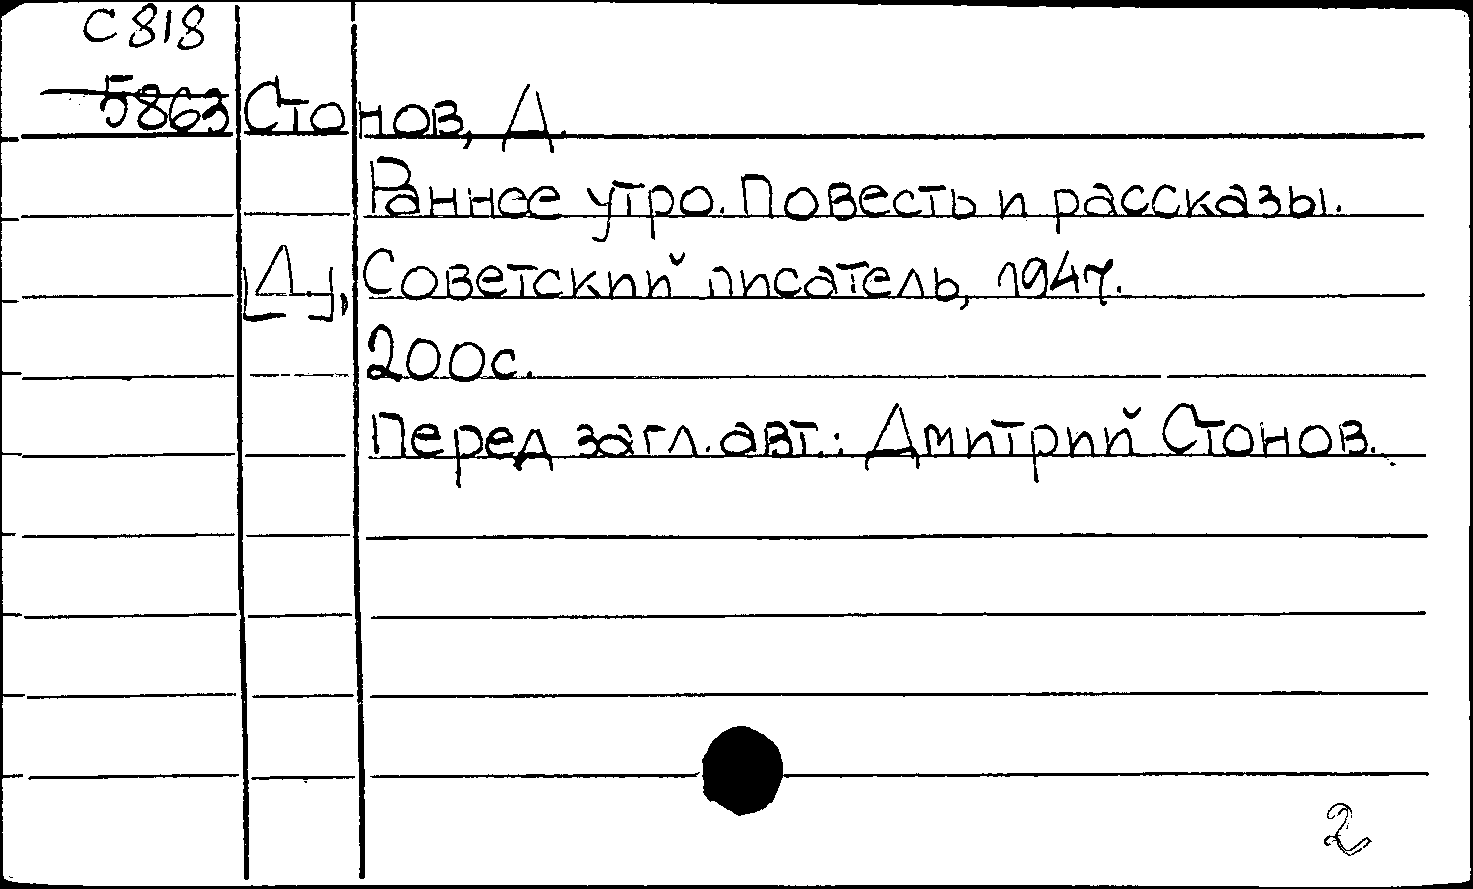 С 818
5863 Стонов, Д.
Раннее утро. Повесть и рассказы.
[Д.], Советский писатель, 1947.
200с.
Перед загл. авт.: Дмитрий Стонов.
2